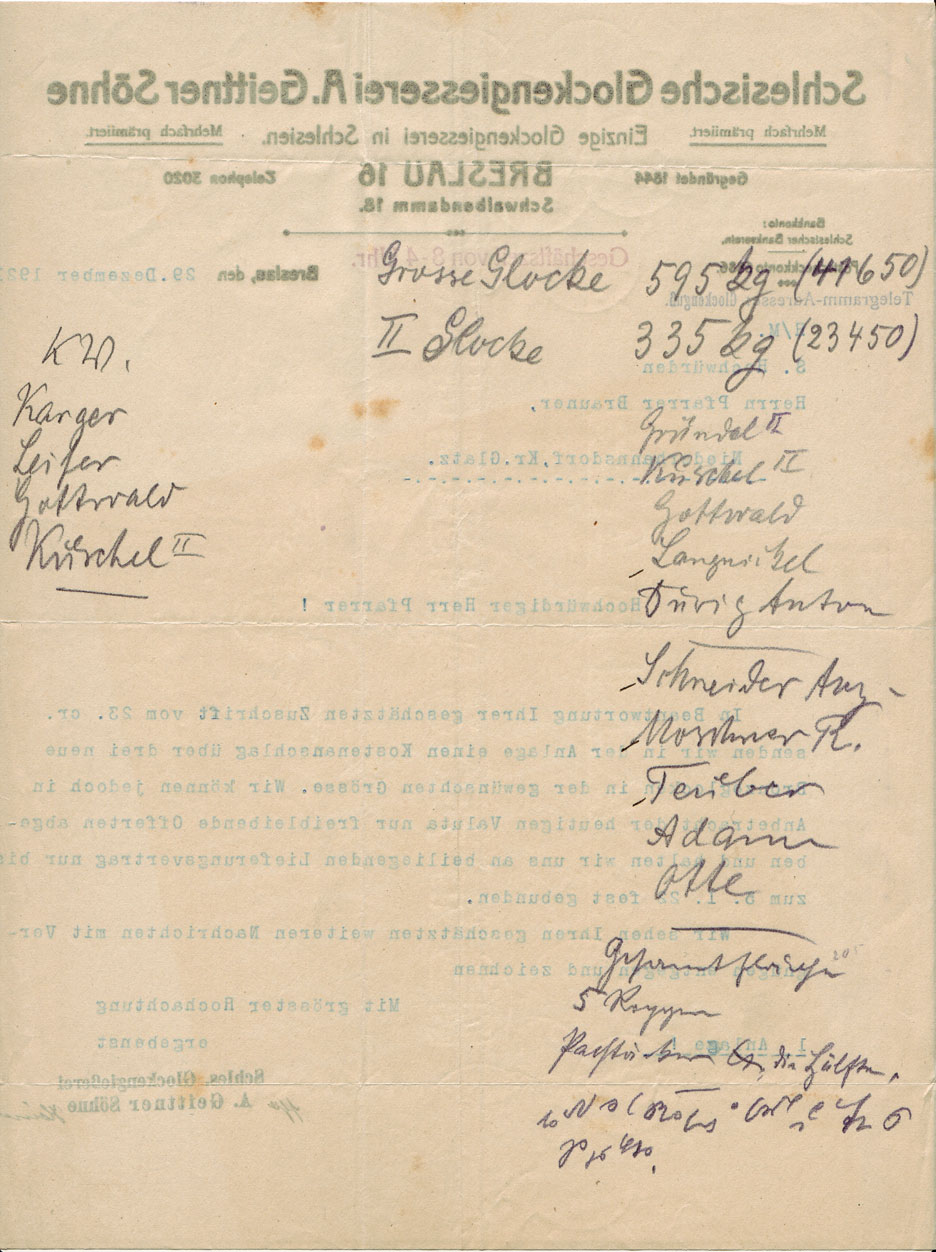 Schlesische Glockengiesserei A. Geittner Söhne
Mehrfach prämiiert. Einzige Glockengiesserei in Schlesien. Mehrfach prämiiert.
Gegründet 1844 BRESLAU 16 Telephon 3020
Schwalbendamm 18.
Bankkonto:
Schlesischer Bankverein.
Geschäftszeit von 8-4 Uhr.
Breslau, den 29.Dezember 192
Telegramm-Adresse: Glockenguß.
Grosse Glocke 595 kg (41650)
II Glocke 335 kg (23450)
S. Hochwürden
Herrn Pfarrer Brauner,
Kr.Glatz.
KW.
Karger
Leifer
Gottwald
Kuschel II
Gründel II
Kuschel II
Gottwald
Langnickel
Durig Anton
Schneider Aug-
Moschner R.
Teuber
Adam
Otte
Hochwürdiger Herr Pfarrer !
In Beantwortung Ihrer geschätzten Zuschrift vom 23. cr.
senden wir in der Anlage einen Kostenanschlag über drei neue
in der gewünschten Grösse. Wir können jedoch in
Anbetracht der heutigen Valuta nur freibleibende Offerten abge-
ben und halten wir uns an beiliegenden Lieferungsvertrag nur bis
zum 5. 1. 22 fest gebunden.
Wir sehen Ihren geschätzten weiteren Nachrichten mit Ver-
und zeichnen
Mit grösster Hochachtung
ergebenst
1 Anlage !
Schles. Glockengießerei
A. Geittner Söhne
Gesamtfläche 205
5 Roggen
die Hälfte.